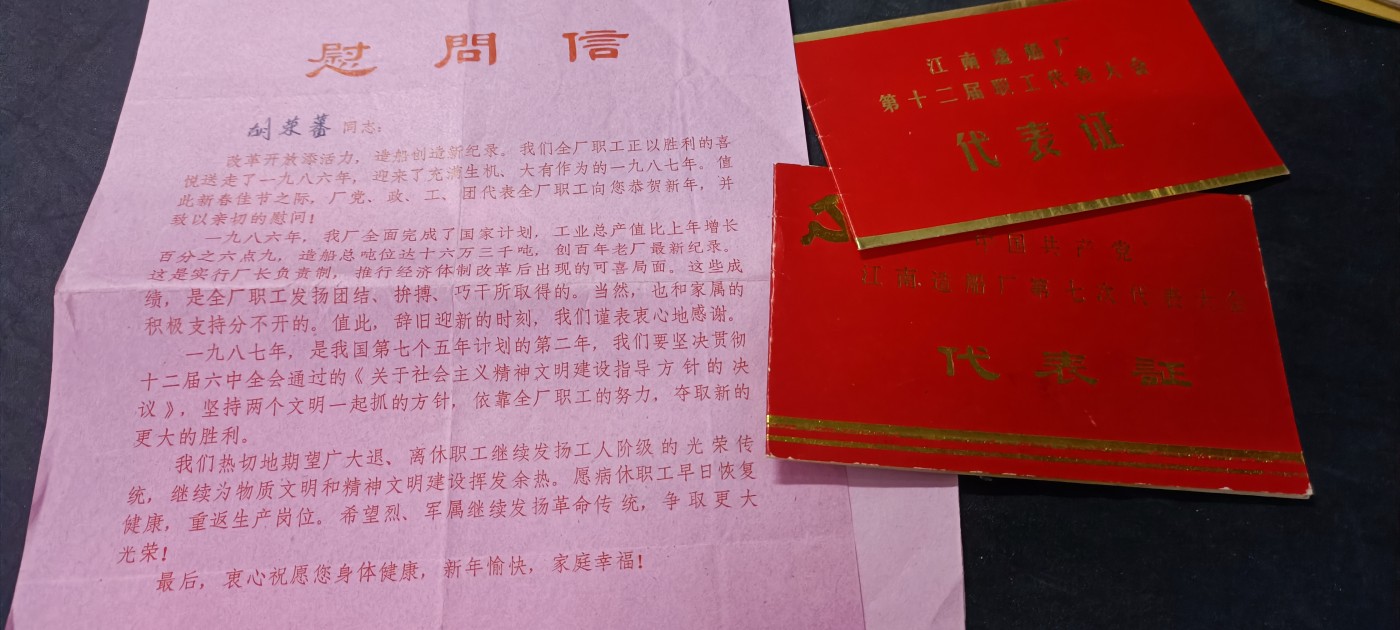 慰問信
胡荣蕃 同志：
改革开放添活力，造船创造新纪录。我们全厂职工正以胜利的喜
悦送走了一九八六年，迎来了充满生机、大有作为的一九八七年。值
此新春佳节之际，厂党、政、工、团代表全厂职工向您恭贺新年，并
致以亲切的慰问！
一九八六年，我厂全面完成了国家计划，工业总产值比上年增长
百分之六点九，造船总吨位达十六万三千吨，创百年老厂最新纪录。
这是实行厂长负责制，推行经济体制改革后出现的可喜局面。这些成
绩，是全厂职工发扬团结、拼搏、巧干所取得的。当然，也和家属的
积极支持分不开的。值此，辞旧迎新的时刻，我们谨表衷心地感谢。
一九八七年，是我国第七个五年计划的第二年，我们要坚决贯彻
十二届六中全会通过的《关于社会主义精神文明建设指导方针的决
议》，坚持两个文明一起抓的方针，依靠全厂职工的努力，夺取新的
更大的胜利。
我们热切地期望广大退、离休职工继续发扬工人阶级的光荣传
统，继续为物质文明和精神文明建设挥发余热。愿病休职工早日恢复
健康，重返生产岗位。希望烈、军属继续发扬革命传统，争取更大
光荣！
最后，衷心祝愿您身体健康，新年愉快，家庭幸福！
江南造船厂
第十二届职工代表大会
代表证
中国共产党
江南造船厂第七次代表大会
代表証